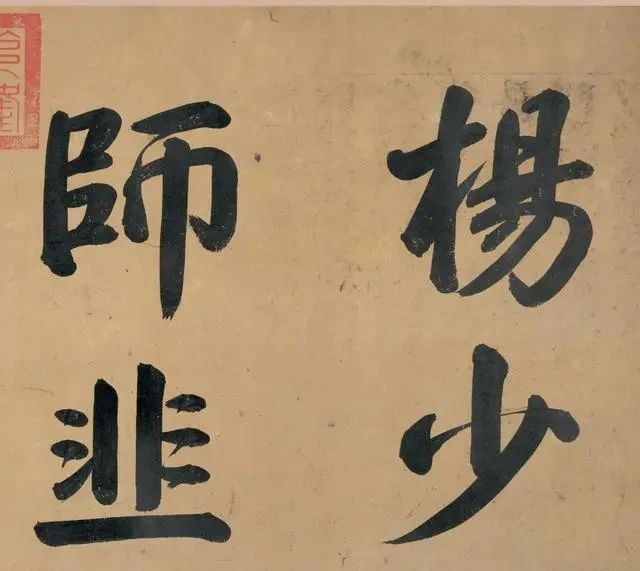 楊少
師韭